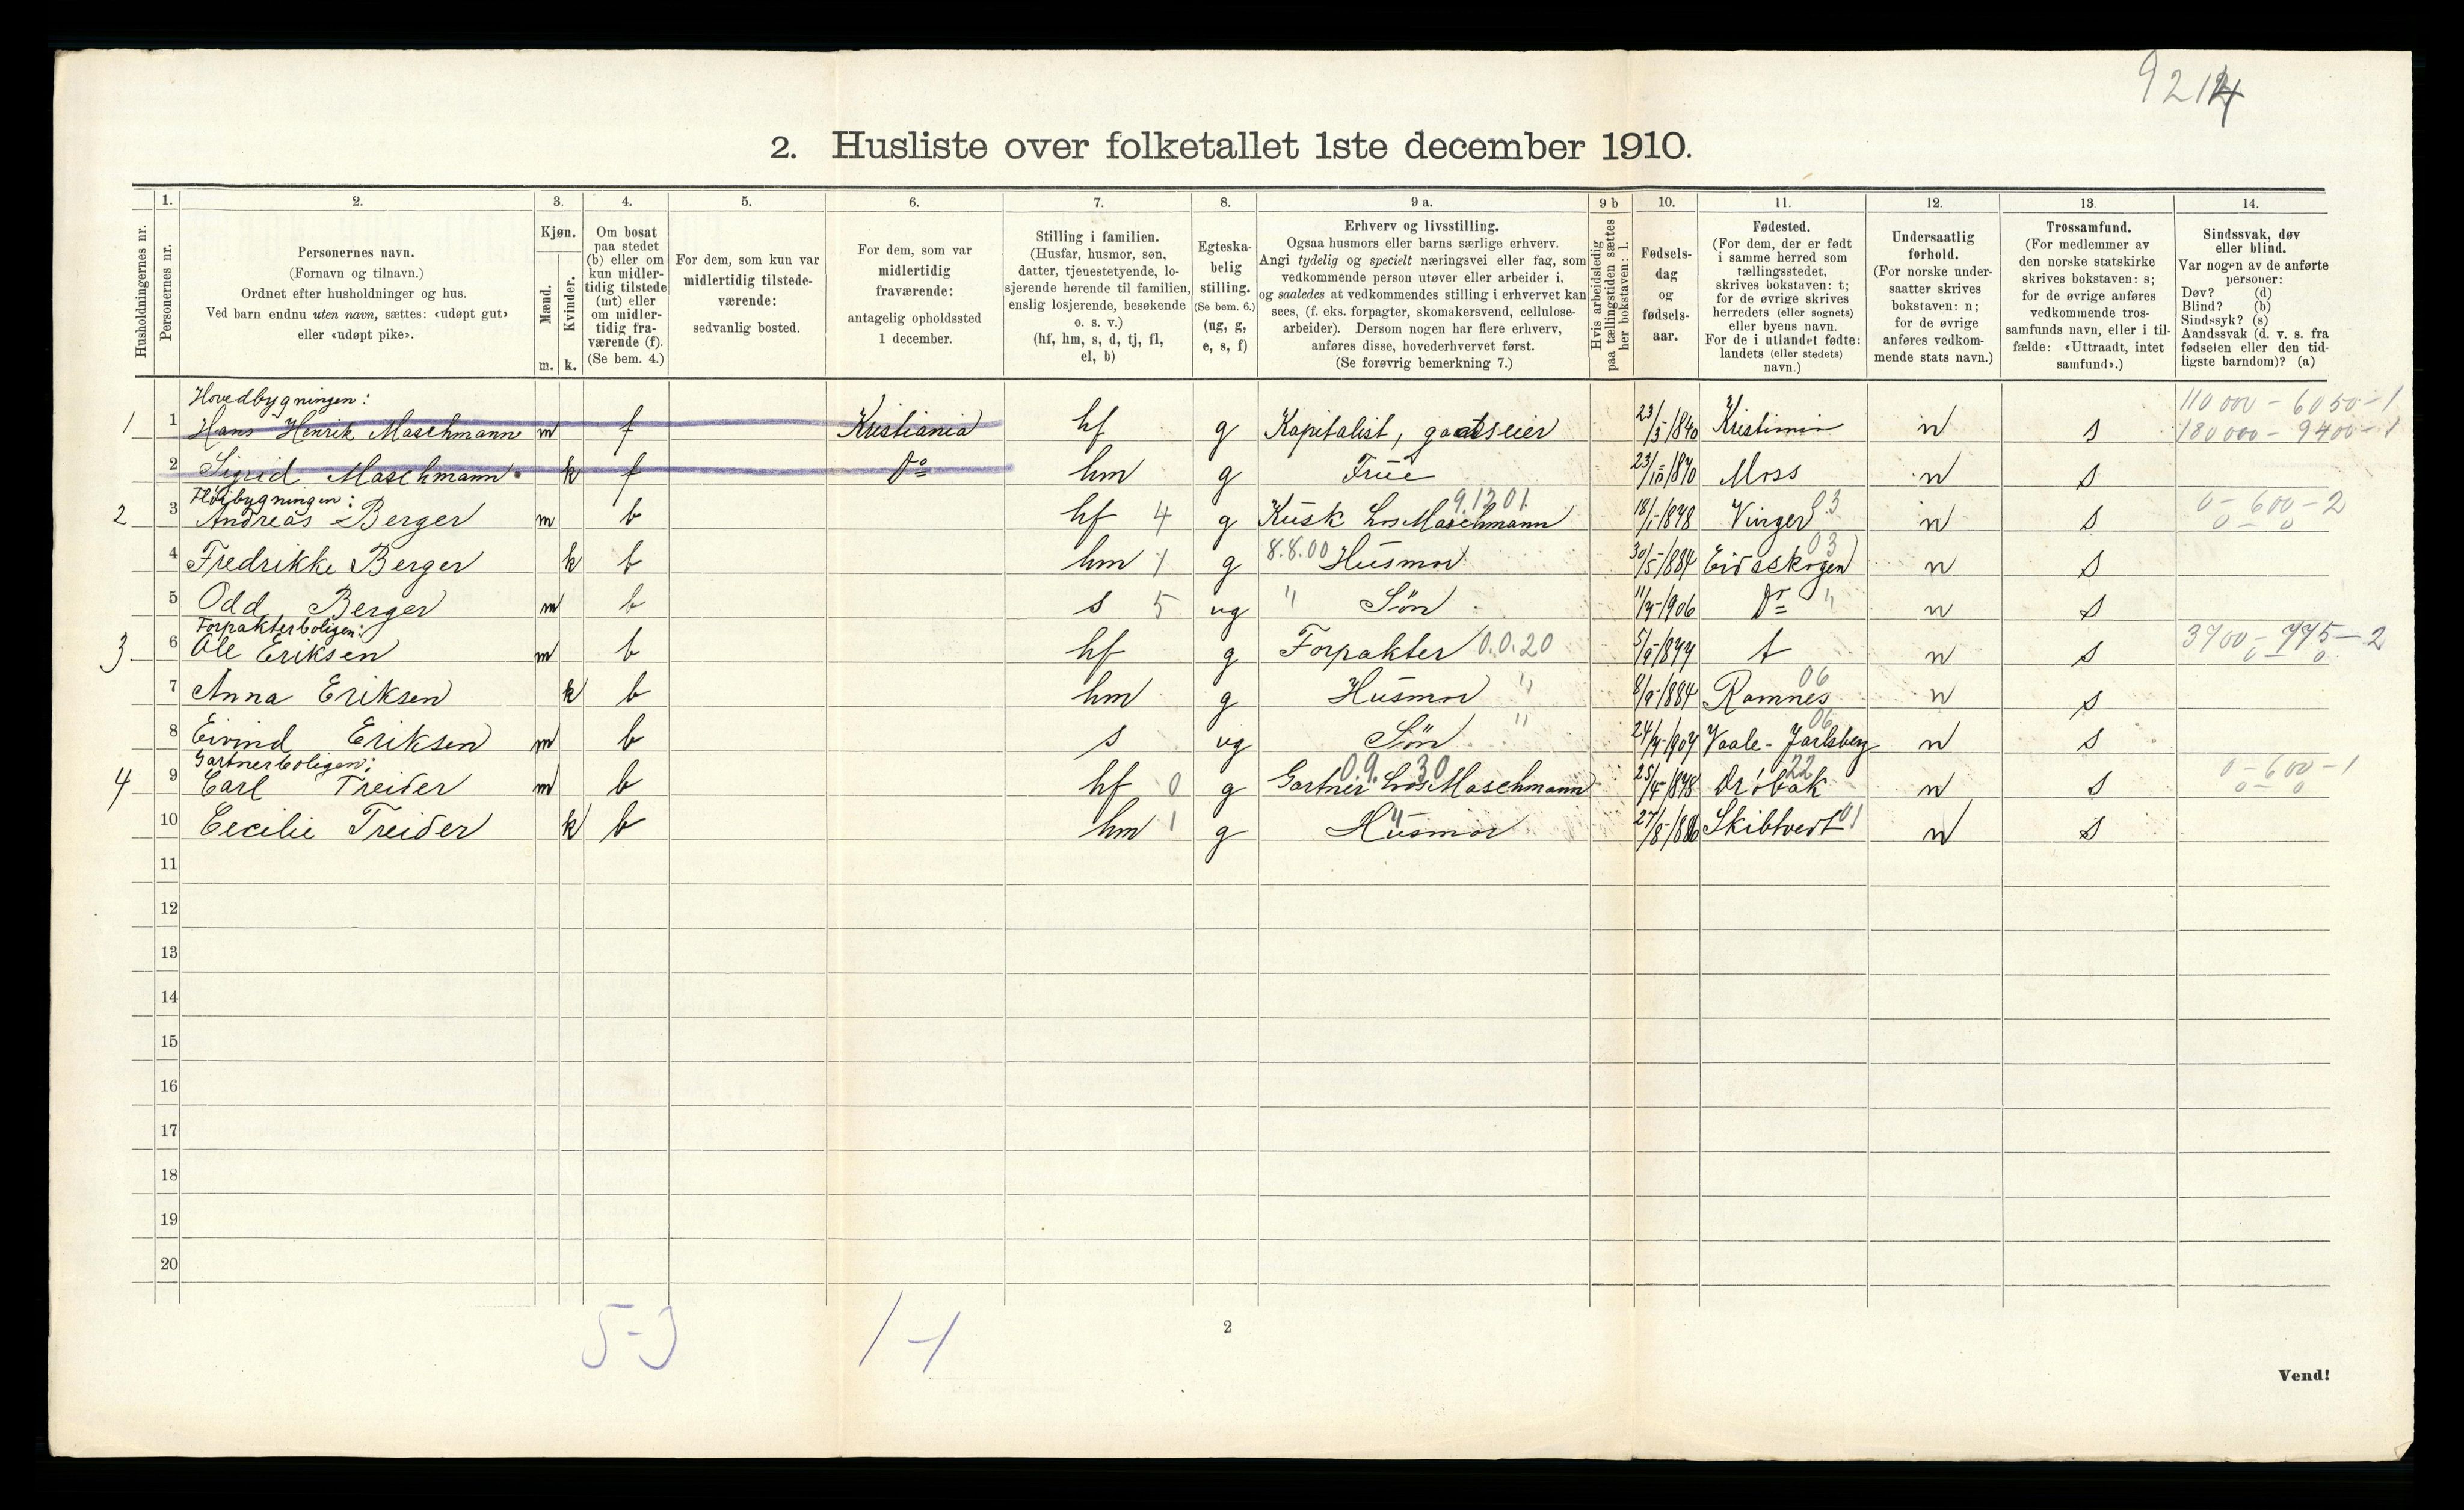 9214
2. Husliste over folketallet 1ste december 1910.
Husholdningernes nr.
1. Personernes nr.
2. Personernes navn.
(Fornavn og tilnavn.)
Ordnet efter husholdninger og hus.
Ved barn endnu uten navn, sættes: «udøpt gut»
eller «udøpt pike».
3. Kjøn.
Mænd. m.
Kvinder. k.
4. Om bosat
paa stedet
(b) eller om
kun midler-
tidig tilstede
(mt) eller
om midler-
tidig fra-
værende (f).
(Se bem. 4.)
5. For dem, som kun var
midlertidig tilstede-
værende:
sedvanlig bosted.
6. For dem, som var
midlertidig
fraværende:
antagelig opholdssted
1 december.
7. Stilling i familien.
(Husfar, husmor, søn,
datter, tjenestetyende, lo-
sjerende hørende til familien,
enslig losjerende, besøkende
o. s. v.)
(hf, hm, s, d, tj, fl,
el, b)
8. Egteska-
belig
stilling.
(Se bem. 6.)
(ug, g,
e, s, f)
9 a. Erhverv og livsstilling.
Ogsaa husmors eller barns særlige erhverv.
Angi tydelig og specielt næringsvei eller fag, som
vedkommende person utøver eller arbeider i,
og saaledes at vedkommendes stilling i erhvervet kan
sees, (f. eks. forpagter, skomakersvend, cellulose-
arbeider). Dersom nogen har flere erhverv,
anføres disse, hovederhvervet først.
(Se forøvrig bemerkning 7.)
9 b Hvis arbeidsledig
paa tællingstiden sættes
her bokstaven: l.
10. Fødsels-
dag
og
fødsels-
aar.
11. Fødested.
(For dem, der er født
i samme herred som
tællingsstedet,
skrives bokstaven: t;
for de øvrige skrives
herredets (eller sognets)
eller byens navn.
For de i utlandet fødte:
landets (eller stedets)
navn.)
12. Undersaatlig
forhold.
(For norske under-
saatter skrives
bokstaven: n;
for de øvrige
anføres vedkom-
mende stats navn.)
13. Trossamfund.
(For medlemmer av
den norske statskirke
skrives bokstaven: s;
for de øvrige anføres
vedkommende tros-
samfunds navn, eller i til-
fælde: «Uttraadt, intet
samfund».)
14. Sindssvak, døv
eller blind.
Var nogen av de anførte
personer:
Døv? (d)
Blind? (b)
Sindssyk? (s)
Aandssvak (d. v. s. fra
fødselen eller den tid-
ligste barndom)? (a)
Hovedbygningen: 110 000 - 6050 - 1
1 1 Hans Henrik Maschmann m f Kristiania hf g Kapitalist, godseier 23/5 1840 Kristiania n s 180000 - 9400 - 1
2 Sigrid Maschmann k f Do hm g Frue Moss n s
Fløibygningen: 9.12.01. 03 0 - 600 - 2
2 3 Andreas Berger m b hf 4 g Kusk hos Maschmann 18/1-1878 Vinger n s 0 - 0
4 Fredrikke Berger k b hm 1 g 8.8.00 Husmor 30/5-1884 Eidsskogen 03 n s
5 Odd Berger m b s 5 ug " Søn Do " n s
Forpakterboligen: 3700 - 775 - 2
3 6 Ole Eriksen m b hf g Forpakter 0.0.20 t n s 0 - 0
7 Anna Eriksen k b hm g Husmor " 8/9-1884 Ramnes 06 n s
8 Eivind Eriksen m b s ug Søn " Vaale - Jarlsberg 06 n s
Gartnerboligen: 0.9.30 22 0 - 600 - 1
4 9 Carl Treider m b hf 0 g Gartner hos Maschmann 25/4-1878 Drøbak n s 0 - 0
10 Cecilie Treider k b hm 1 g " Husmor Skibtvedt 01 n s
11
12
13
14
15
16
17
18
19
20
5-3
1-1
2
Vend!